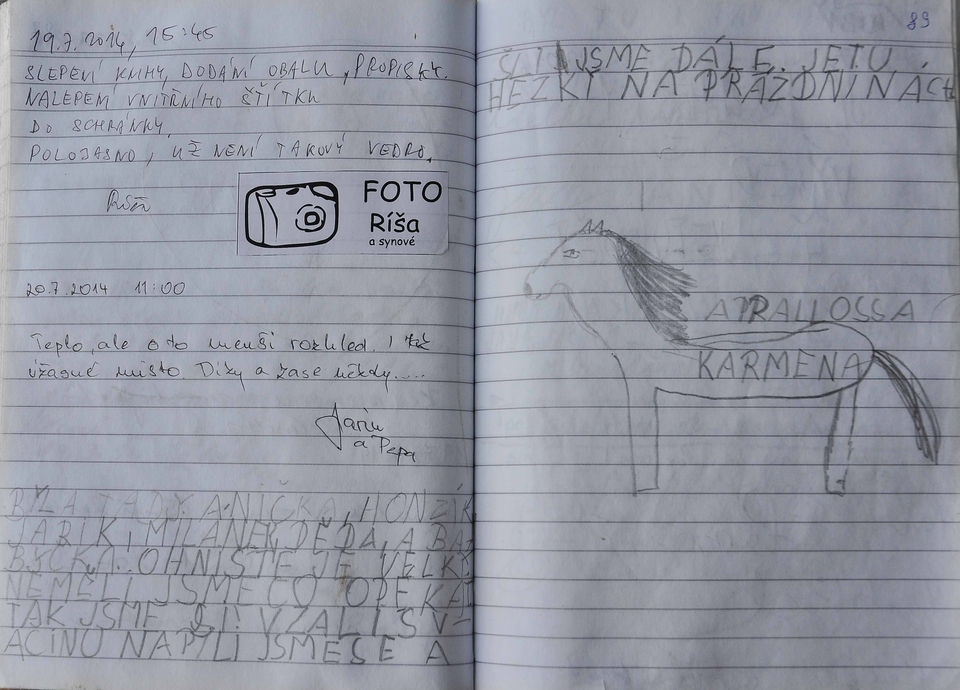 19.7.2014, 15:45
SLEPENÍ KNIHY, DODÁNÍ OBALU, PROPISKY.
NALEPENÍ VNITŘNÍHO ŠTÍTKU
DO SCHRÁNKY.
POLOJASNO, UŽ NENÍ TAKOVÝ VEDRO.
FOTO
Ríša
a synové
20.7.2014 11:00
Teplo, ale o to menší rozhled. I tak
úžasné místo. Díky a zase někdy....
a Pepa
BYLA TADY ANIČKA, HONZÍK
JARIK, MILÁNEK DĚDA, A BA
BIČKA. OHNIŠTE JE VELKÉ
NEMĚLI JSME CO OPÉKAT
TAK JSME SI VZALI SV-
AČINU NAPILI JSME SE A
89
ŠLI JSME DÁLE. JE TU
HEZKÝ NA PRÁZDNINÁCH
APRALLOSSA
KARMENA